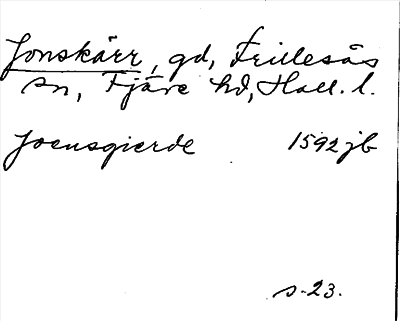 Jonskärr, gd, Frillesås
sn, Fjäre hd, Hall. l.
Joensgierde 1592 jb
s. 23.